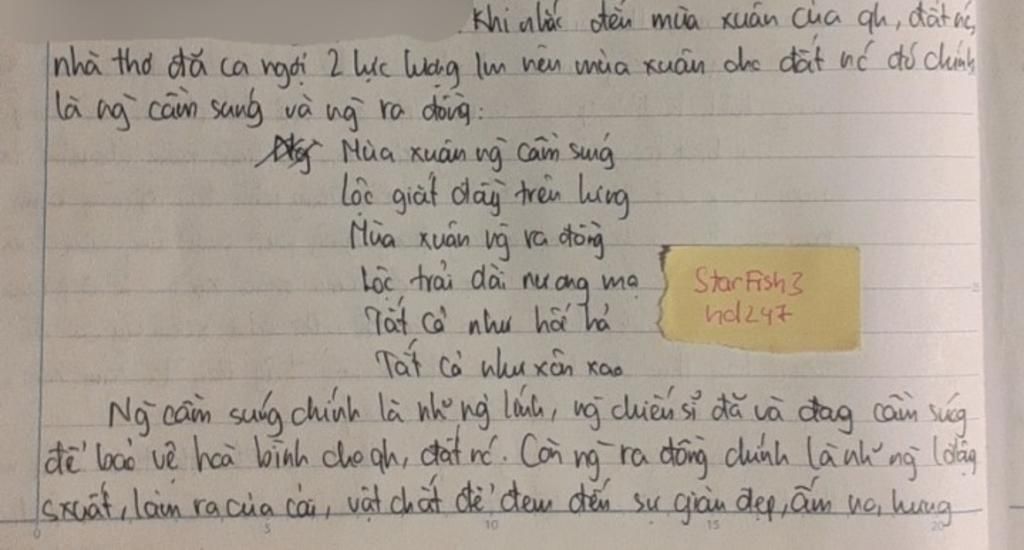 Khi nhắc đến mùa xuân của qh, đất nc,
nhà thơ đã ca ngợi 2 lực lượng lm nên mùa xuân cho đất nc đó chính
là ng` cầm súng và ng` ra đồng:
Mùa xuân ng` cầm súng
Lộc giắt đầy trên lưng
Mùa xuân ng` ra đồng
Lộc trải dài nương mạ
Tất cả như hối hả
Tất cả như xôn xao
StarFish3
hd247
Ng` cầm súng chính là nh~ng` lính, ng` chiến sĩ đã và đag cầm súg
để bảo vệ hoà bình cho qh, đất nc. Còn ng` ra đồng chính là nh~ ng` lđộg
sxuất, làm ra của cải, vật chất để đem đến sự giàu đẹp, ấm no, hưng
0 5 10 15 20